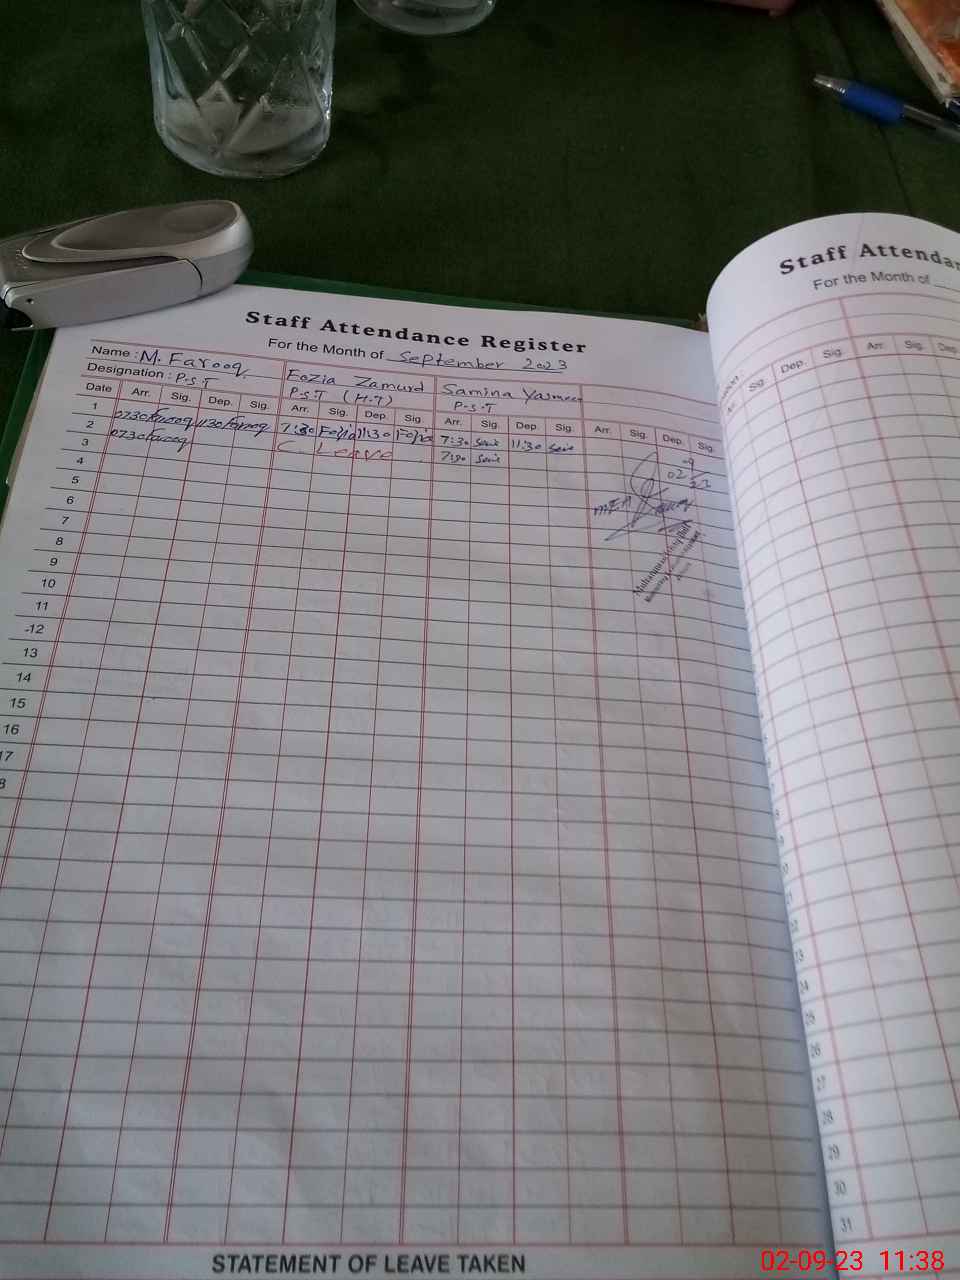 Staff Attendance Register
For the Month of September 2023
Name : M. Farooq Fozia Zamurd Samina Yasmeen
Designation : P.S.T P.S.T (H.T) P.S.T
Date Arr. Sig. Dep. Sig. Arr. Sig. Dep. Sig. Arr. Sig. Dep. Sig. Arr. Sig. Dep. Sig.
1 0730 Farooq 1130 Farooq 7:30 Fozia 11:30 Fozia 7:30 11:30
2 0730 Farooq C. Leave 7:30
3
4
5
6
7
8
9
10
11
12
13
14
15
16
17
8
MEA
02
STATEMENT OF LEAVE TAKEN
Staff Attendan
For the Month of
Sig. Dep. Sig. Arr. Sig. Dep.
24
25
26
27
28
29
30
31
02-09-23 11:38